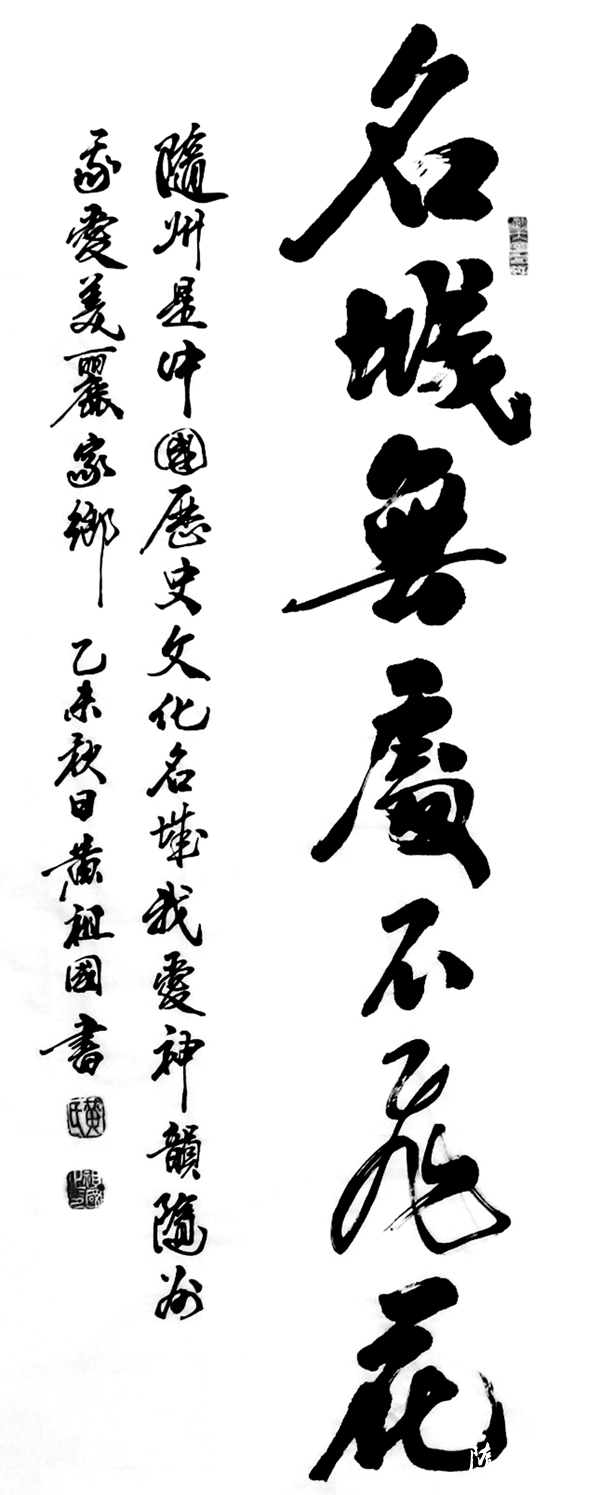 名城無處不飛花
隨州是中國歷史文化名城我愛神韻隨州
我愛美麗家鄉 乙未秋日黃祖國書